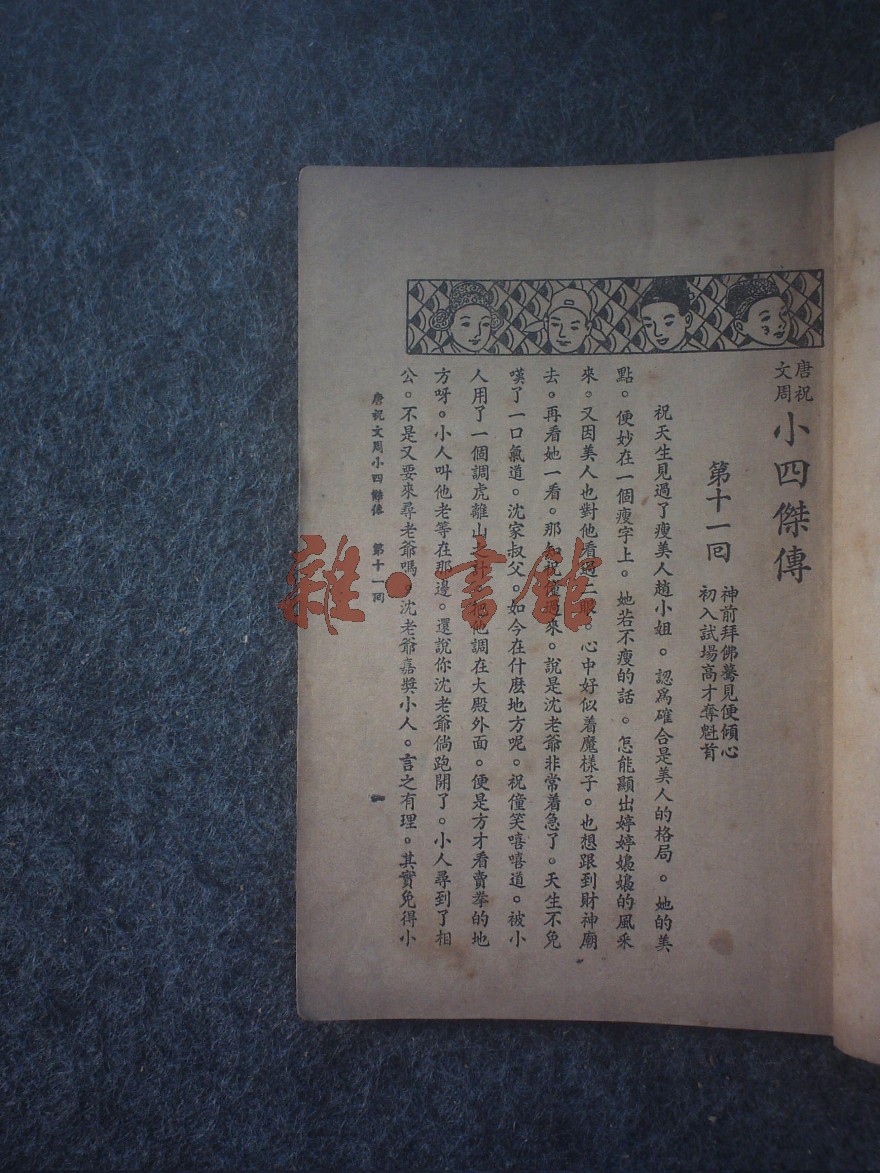 唐祝
文周
小四傑傳
第十一回
神前拜佛驀見便傾心
初入試場高才奪魁首
祝天生見過了瘦美人趙小姐。認爲確合是美人的格局。她的美
點。便妙在一個瘦字上。她若不瘦的話。怎能顯出婷婷嫋嫋的風采
來。又因美人也對他看過二眼。心中好似着魔樣子。也想跟到財神廟
去。再看她一看。那知祝僮過來。說是沈老爺非常着急了。天生不免
嘆了一口氣道。沈家叔父。如今在什麽地方呢。祝僮笑嘻嘻道。被小
人用了一個調虎離山之計。把他調在大殿外面。便是方才看賣拳的地
方呀。小人叫他老等在那邊。還說你沈老爺倘跑開了。小人尋到了相
公。不是又要來尋老爺嗎。沈老爺嘉獎小人。言之有理。其實免得小
唐祝文周小四傑傳 第十一回
一
雜·書館